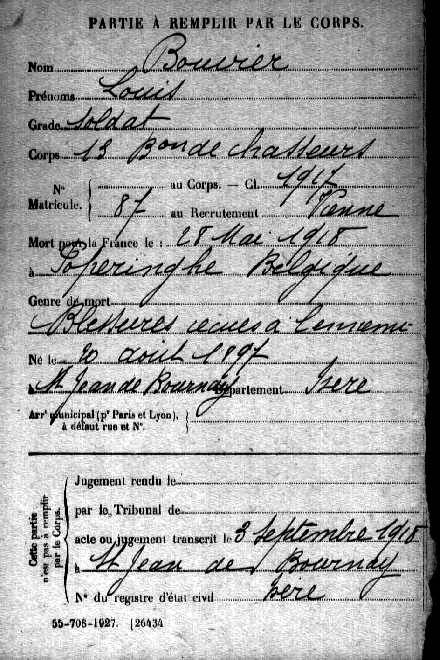 PARTIE À REMPLIR PAR LE CORPS.
Nom Bouvier
Prénoms Louis
Grade Soldat
Corps 13 Bon de chasseurs
N° Matricule. { au Corps. — Cl. 1917
87 au Recrutement Vienne
Mort pour la France le : 28 Mai 1918
à Poperinghe Belgique
Genre de mort
Blessures reçues à l'ennemi
Né le 20 août 1897
à St Jean de Bournay Département Isère
Arrt municipal (pr Paris et Lyon), à défaut rue et N°. }
Cette partie n'est pas à remplir par le Corps.
Jugement rendu le
par le Tribunal de
acte ou jugement transcrit le 3 septembre 1918
à St Jean de Bournay
N° du registre d'état civil Isère
55-708-1927. [26434